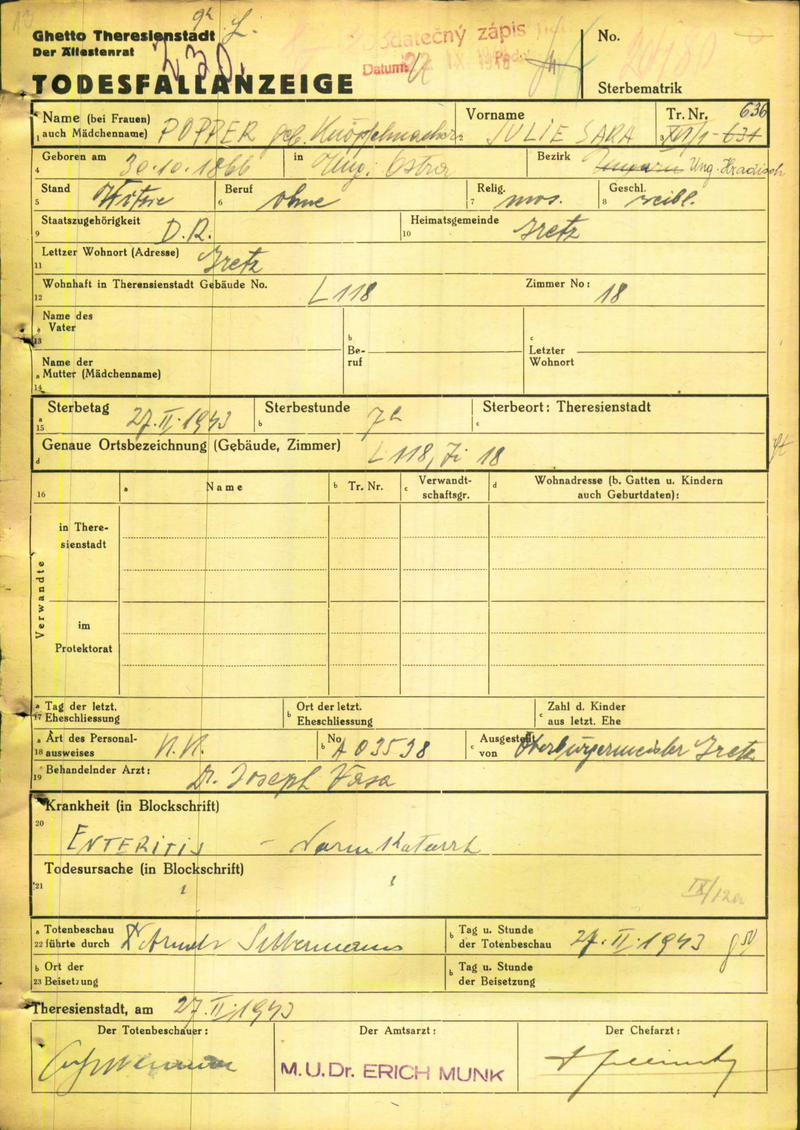 Ghetto Theresienstadt
Der Ältestenrat
TODESFALLANZEIGE
Dodatečný zápis
Datum:
No.
Sterbematrik
Name (bei Frauen)
1 auch Mädchenname) POPPER geb. Knöpfelmacher
Vorname JULIE SARA
Tr. Nr. 636
4 Geboren am 30.10.1866 in Ung. Ostra Bezirk Ung. Hradisch
Stand Witwe Beruf ohne Relig. mos. Geschl. weibl.
5 6 7 8
Staatszugehörigkeit D.R. Heimatsgemeinde
9 10
Lettzer Wohnort (Adresse)
11
Wohnhaft in Therensienstadt Gebäude No. L 118 Zimmer No: 18
12
Name des
a Vater
13
b
Be-
ruf
c
Letzter
Wohnort
Name der
a Mutter (Mädchenname)
14
a Sterbetag 27.II.1943 b Sterbestunde 7h c Sterbeort: Theresienstadt
15
d Genaue Ortsbezeichnung (Gebäude, Zimmer) L 118, Zi 18
16 a Name b Tr. Nr. c Verwandt-
schaftsgr. d Wohnadresse (b. Gatten u. Kindern
auch Geburtdaten):
Verwandte
in There-
sienstadt
im
Protektorat
a Tag der letzt.
17 Eheschliessung
b Ort der letzt.
Eheschliessung
c Zahl d. Kinder
aus letzt. Ehe
a Art des Personal-
18 ausweises
b No A 03538
c Ausgestellt
von Oberbürgermeister
19 Behandelnder Arzt: Dr. Joseph Vasa
Krankheit (in Blockschrift)
20
ENTERITIS - Darmkatarrh
Todesursache (in Blockschrift)
21
IX/12a
a Totenbeschau
22 führte durch
b Tag u. Stunde
der Totenbeschau 27.II.1943
b Ort der
23 Beisetzung
b Tag u. Stunde
der Beisetzung
Theresienstadt, am 27.II.1943
Der Totenbeschauer: Der Amtsarzt: Der Chefarzt:
M.U.Dr. ERICH MUNK